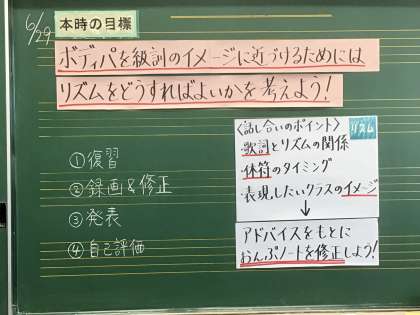 6/29
本時の目標
ボディパを級訓のイメージに近づけるためには
リズムをどうすればよいかを考えよう!
①復習
②録画&修正
③発表
④自己評価
〈話し合いのポイント〉
リズム
・歌詞とリズムの関係
・休符のタイミング
・表現したいクラスのイメージ
↓
アドバイスをもとに
おんぷノートを修正しよう!